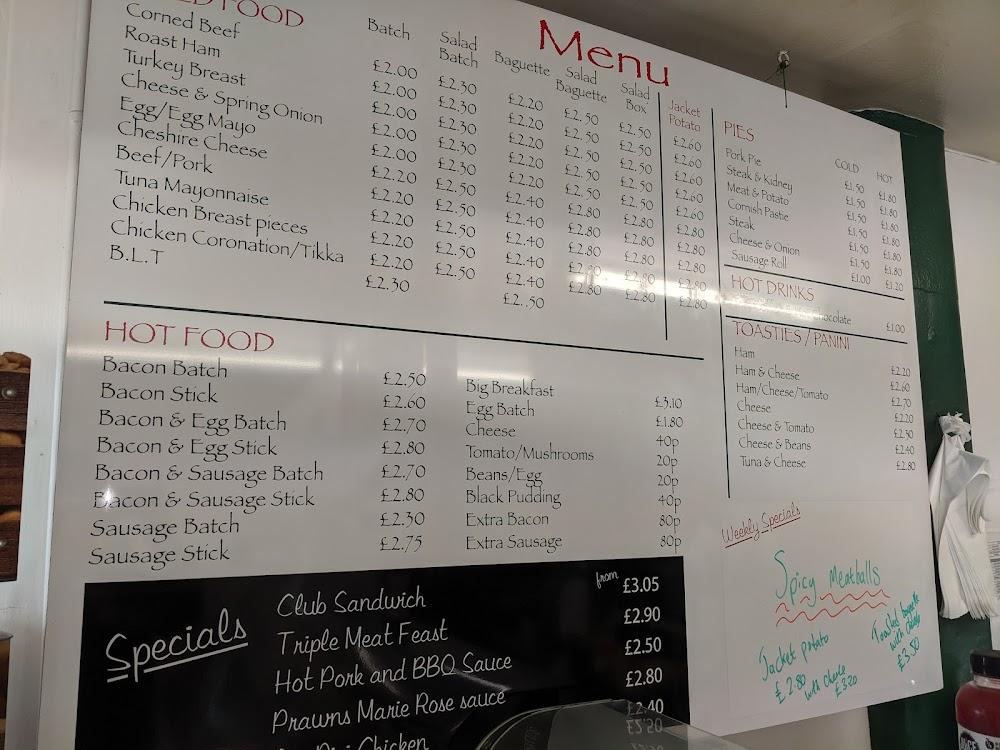 Menu
FOOD
Batch
Salad Batch
Baguette
Salad Baguette
Salad Box
Jacket Potato
Corned Beef £2.00 £2.30 £2.20 £2.50 £2.50 £2.60
Roast Ham £2.00 £2.30 £2.20 £2.50 £2.50 £2.60
Turkey Breast £2.00 £2.30 £2.20 £2.50 £2.50 £2.60
Cheese & Spring Onion £2.00 £2.30 £2.20 £2.50 £2.50 £2.60
Egg/Egg Mayo £2.00 £2.30 £2.20 £2.50 £2.50 £2.60
Cheshire Cheese £2.20 £2.50 £2.40 £2.80 £2.80 £2.80
Beef/Pork £2.20 £2.50 £2.40 £2.80 £2.80 £2.80
Tuna Mayonnaise £2.20 £2.50 £2.40 £2.80 £2.80 £2.80
Chicken Breast pieces £2.20 £2.50 £2.40 £2.80 £2.80
Chicken Coronation/Tikka £2.20 £2.40 £2.80 £2.80 £2.80
B.L.T £2.30 £2.50
HOT FOOD
Bacon Batch £2.50
Bacon Stick £2.60
Bacon & Egg Batch £2.70
Bacon & Egg Stick £2.80
Bacon & Sausage Batch £2.70
Bacon & Sausage Stick £2.80
Sausage Batch £2.30
Sausage Stick £2.75
Big Breakfast £3.10
Egg Batch £1.80
Cheese 40p
Tomato/Mushrooms 20p
Beans/Egg 20p
Black Pudding 40p
Extra Bacon 80p
Extra Sausage 80p
PIES
COLD HOT
Pork Pie £1.50 £1.80
Steak & Kidney £1.50 £1.80
Meat & Potato £1.50 £1.80
Cornish Pastie £1.50 £1.80
Steak £1.50 £1.80
Cheese & Onion £1.50 £1.80
Sausage Roll £1.00 £1.20
HOT DRINKS
Chocolate £1.00
TOASTIES / PANINI
Ham £2.20
Ham & Cheese £2.60
Ham/Cheese/Tomato £2.70
Cheese £2.20
Cheese & Tomato £2.30
Cheese & Beans £2.40
Tuna & Cheese £2.80
Weekly Specials
Spicy Meatballs
Jacket potato
£2.80
with cheese
£3.20
Toasted baguette
with
£3.50
Specials
from
Club Sandwich £3.05
Triple Meat Feast £2.90
Hot Pork and BBQ Sauce £2.50
Prawns Marie Rose sauce £2.80
Chicken £2.40